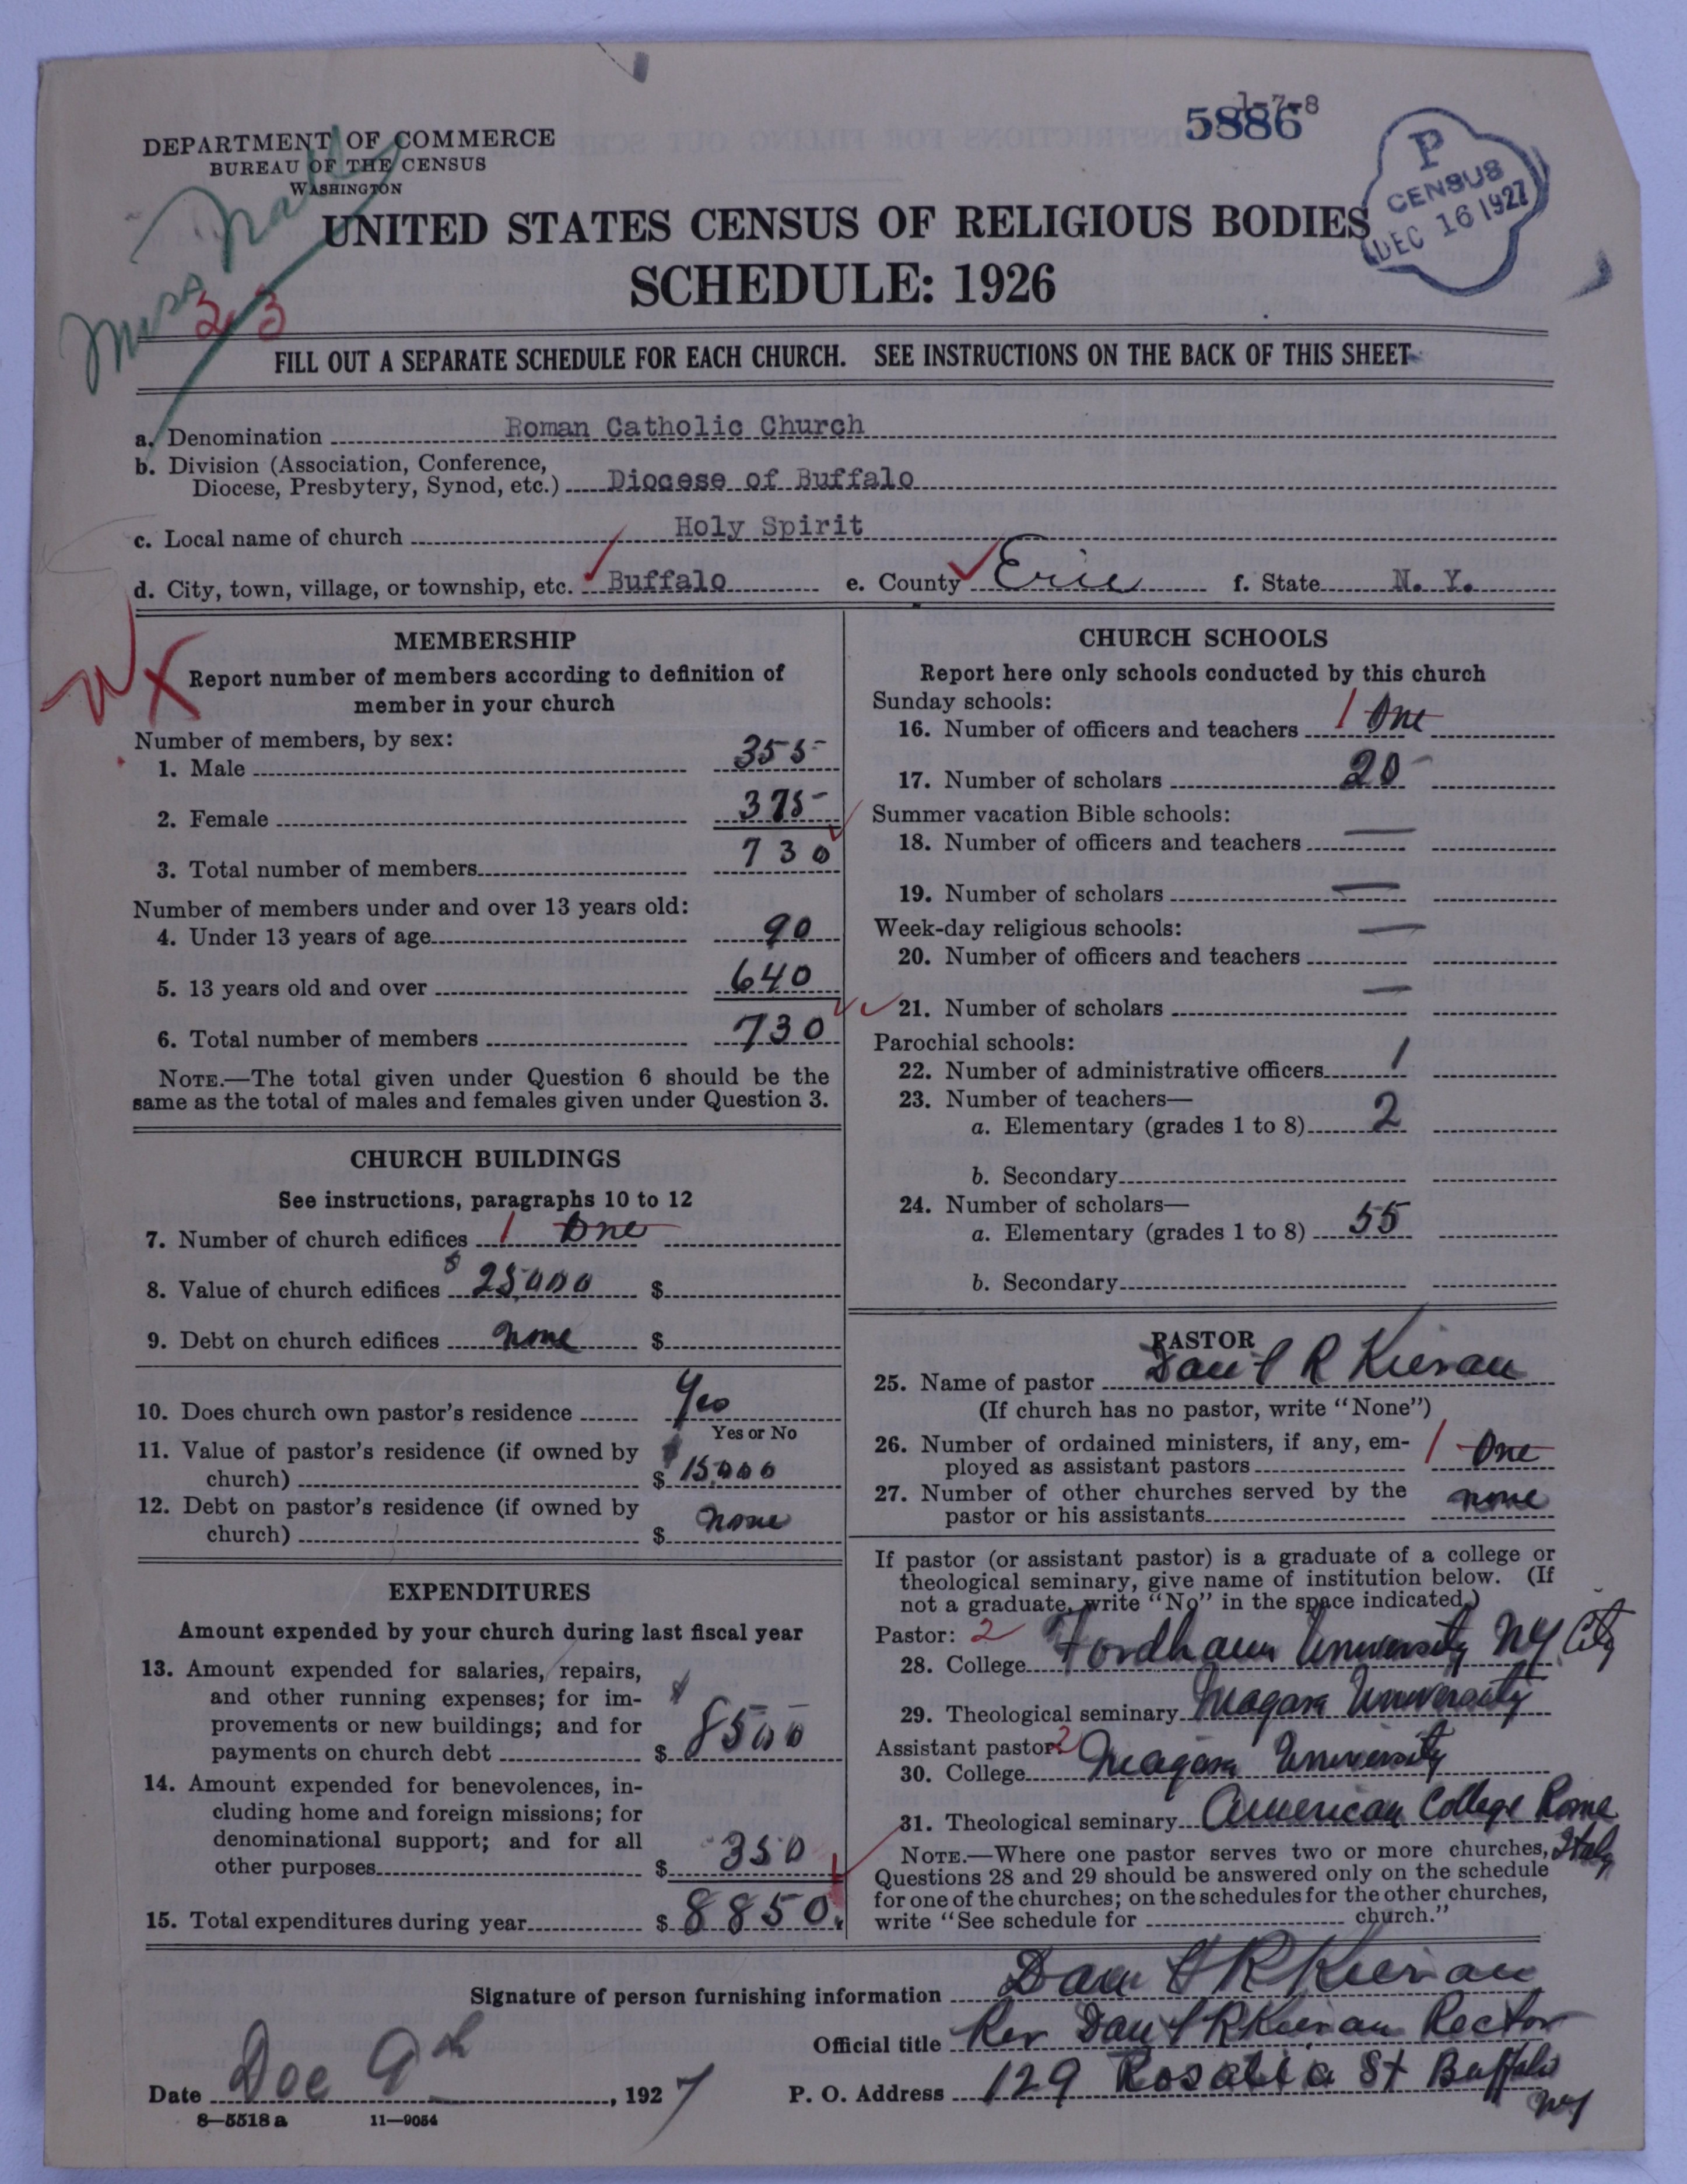 1-7-8
5886
DEPARTMENT OF COMMERCE
BUREAU OF THE CENSUS
WASHINGTON
P
CENSUS
DEC 16 1927
UNITED STATES CENSUS OF RELIGIOUS BODIES
SCHEDULE: 1926
Mrs
23
FILL OUT A SEPARATE SCHEDULE FOR EACH CHURCH. SEE INSTRUCTIONS ON THE BACK OF THIS SHEET
a. Denomination Roman Catholic Church
b. Division (Association, Conference,
Diocese, Presbytery, Synod, etc.) Diocese of Buffalo
c. Local name of church Holy Spirit
d. City, town, village, or township, etc. Buffalo e. County Erie f. State N. Y.
MEMBERSHIP
Report number of members according to definition of
member in your church
Number of members, by sex:
1. Male 355
2. Female 375
3. Total number of members 730
Number of members under and over 13 years old:
4. Under 13 years of age 90
5. 13 years old and over 640
6. Total number of members 730
NOTE.—The total given under Question 6 should be the
same as the total of males and females given under Question 3.
CHURCH BUILDINGS
See instructions, paragraphs 10 to 12
7. Number of church edifices 1 One
8. Value of church edifices $ 25,000 $
9. Debt on church edifices none $
10. Does church own pastor's residence Yes
Yes or No
11. Value of pastor's residence (if owned by
church) $ 15,000
12. Debt on pastor's residence (if owned by
church) $ none
EXPENDITURES
Amount expended by your church during last fiscal year
13. Amount expended for salaries, repairs,
and other running expenses; for im-
provements or new buildings; and for
payments on church debt $ 8500
14. Amount expended for benevolences, in-
cluding home and foreign missions; for
denominational support; and for all
other purposes $ 350
15. Total expenditures during year $ 8850.
CHURCH SCHOOLS
Report here only schools conducted by this church
Sunday schools:
16. Number of officers and teachers 1 One
17. Number of scholars 20
Summer vacation Bible schools:
18. Number of officers and teachers —
19. Number of scholars —
Week-day religious schools: —
20. Number of officers and teachers
21. Number of scholars —
Parochial schools:
22. Number of administrative officers 1
23. Number of teachers—
a. Elementary (grades 1 to 8) 2
b. Secondary
24. Number of scholars—
a. Elementary (grades 1 to 8) 55
b. Secondary
PASTOR
25. Name of pastor Dan'l R Kiernan
(If church has no pastor, write "None")
26. Number of ordained ministers, if any, em-
ployed as assistant pastors 1 One
27. Number of other churches served by the
pastor or his assistants none
If pastor (or assistant pastor) is a graduate of a college or
theological seminary, give name of institution below. (If
not a graduate, write "No" in the space indicated.)
Pastor: 2
28. College Fordham University NY City
29. Theological seminary Niagara University
Assistant pastor: 2
30. College Niagara University
31. Theological seminary American College Rome
Italy
NOTE.—Where one pastor serves two or more churches,
Questions 28 and 29 should be answered only on the schedule
for one of the churches; on the schedules for the other churches,
write "See schedule for church."
Signature of person furnishing information Dan'l R Kiernan
Official title Rev Dan'l R Kiernan Rector
Date Dec 9th, 1927
P. O. Address 129 Rosalia St Buffalo
NY
8—5518 a 11—9054